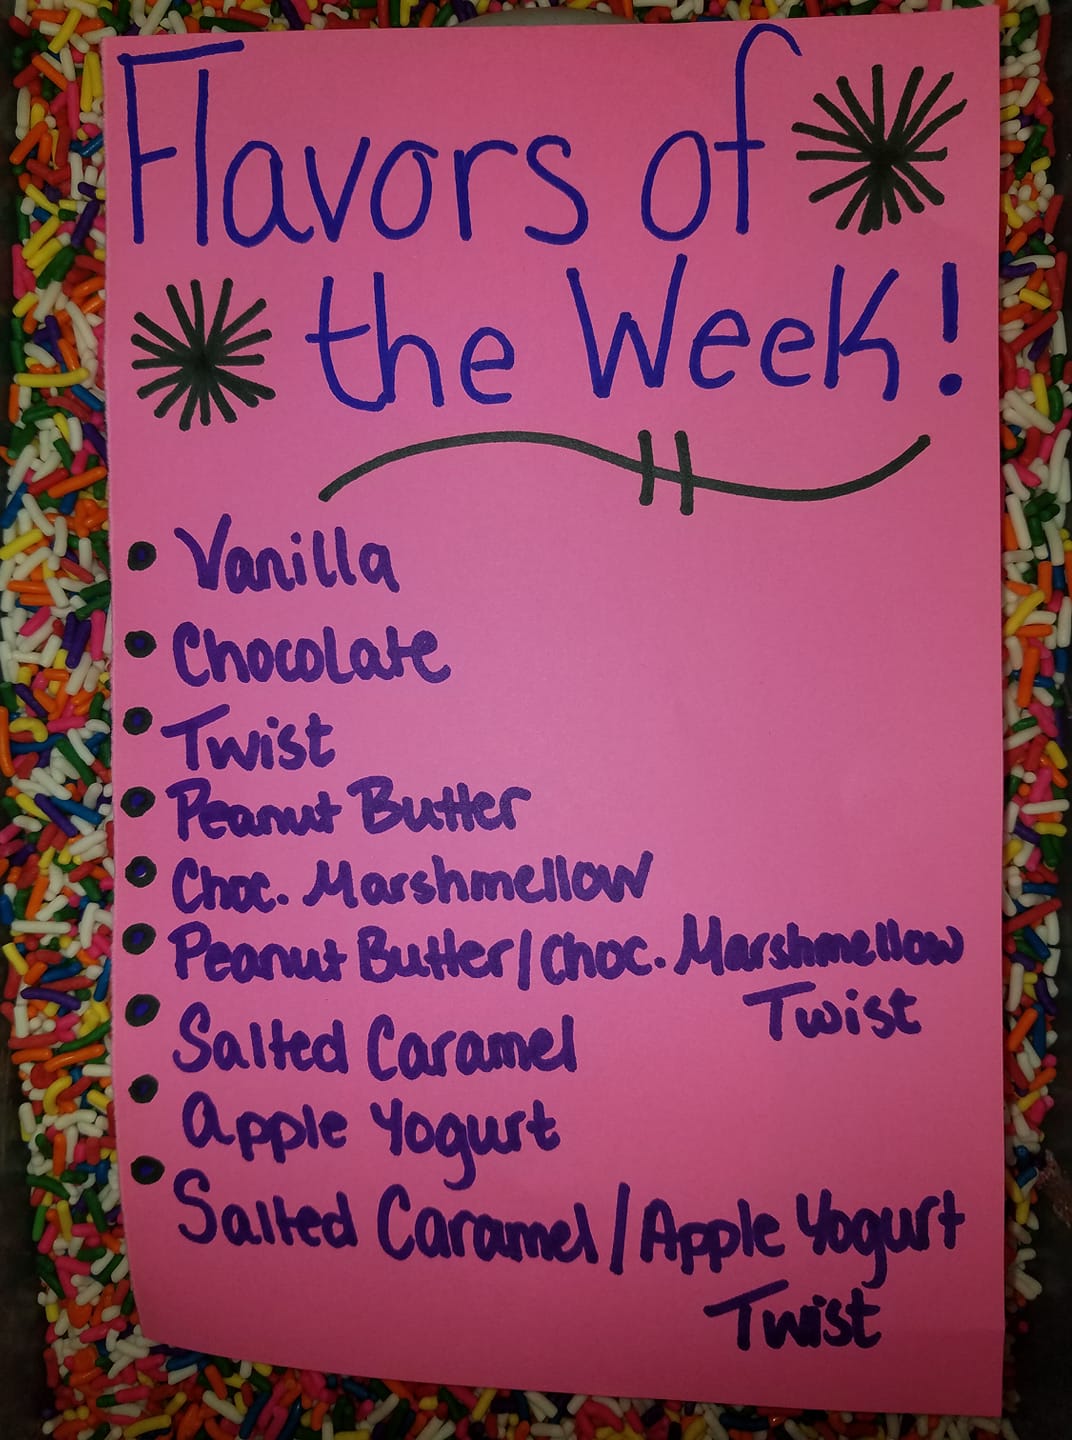 Flavors of
the Week!
Vanilla
Chocolate
Twist
Peanut Butter
Choc. Marshmellow
Peanut Butter/Choc. Marshmellow
Twist
Salted Caramel
Apple Yogurt
Salted Caramel/Apple Yogurt
Twist